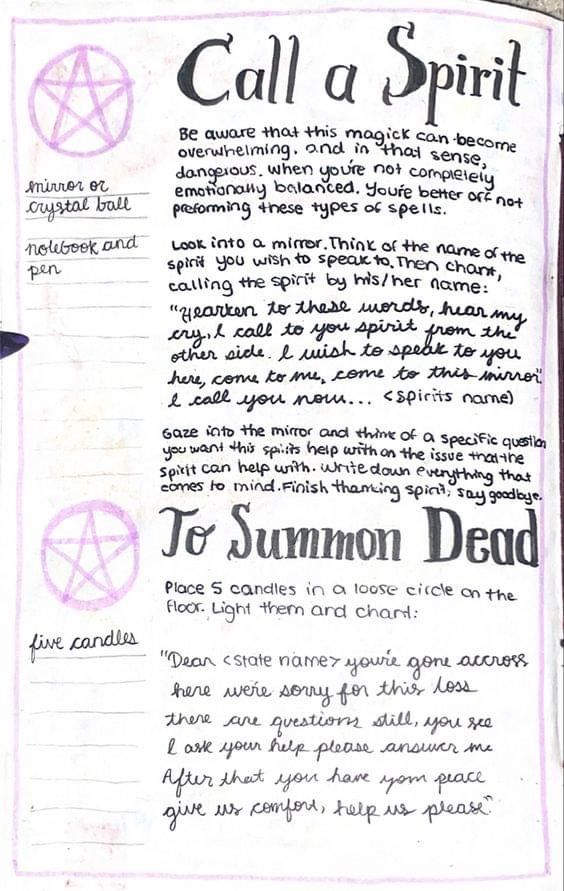 Call a Spirit
Be aware that this magick can become
overwhelming. and in that sense,
dangerous. when you're not completely
emotionally balanced. you're better off not
preforming these types of spells.
mirror or
crystal ball
notebook and
pen
Look into a mirror. Think of the name of the
spirit you wish to speak to. Then chant,
calling the spirit by his/her name:
"Hearken to these words, hear my
cry, I call to you spirit from the
other side. I wish to speak to you
here, come to me, come to this mirror"
I call you now... <spirits name)
Gaze into the mirror and think of a specific question
you want this spirits help with on the issue that the
spirit can help with. Write down everything that
comes to mind. Finish thanking spirit, say goodbye.
To Summon Dead
Place 5 candles in a loose circle on the
floor. Light them and chant:
five candles
"Dear <state name> you're gone accross
here we're sorry for this loss
there are questions still, you see
I ask your help please answer me
After that you have yom peace
give us comfort, help us please"